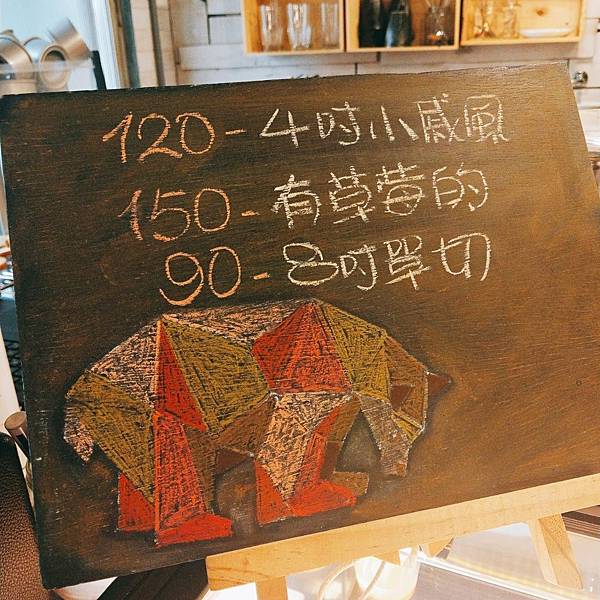 120-4吋小戚風
150-有草莓的
90-8吋單切